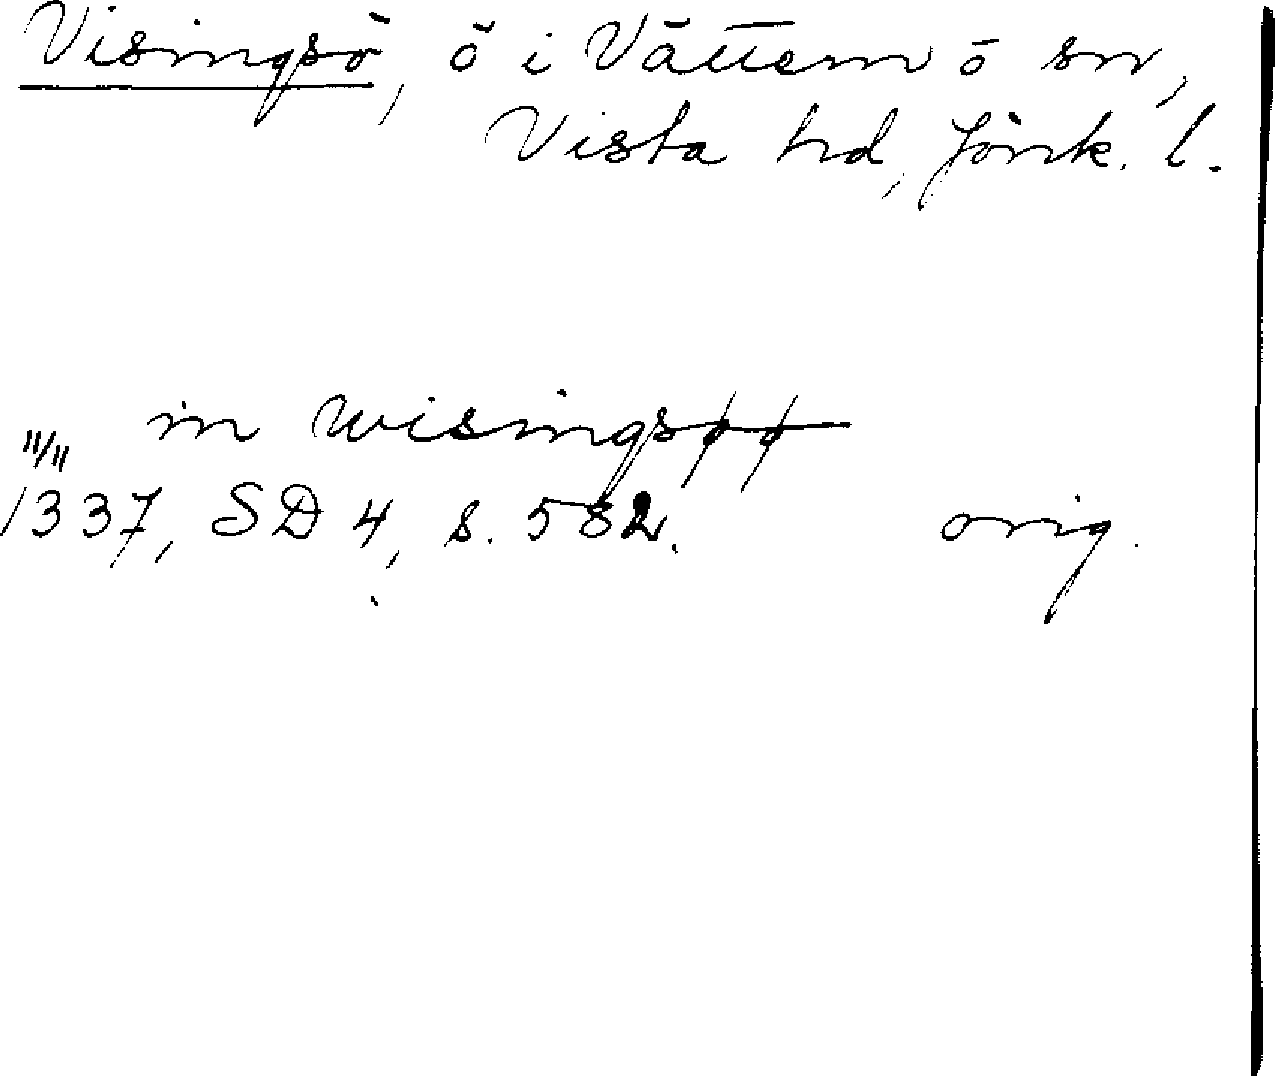 Visingsö, ö i Vättern o sn,
Vista hd, Jönk. l.
in wisingsøø
11/11
1337, SD 4, s. 582. orig.